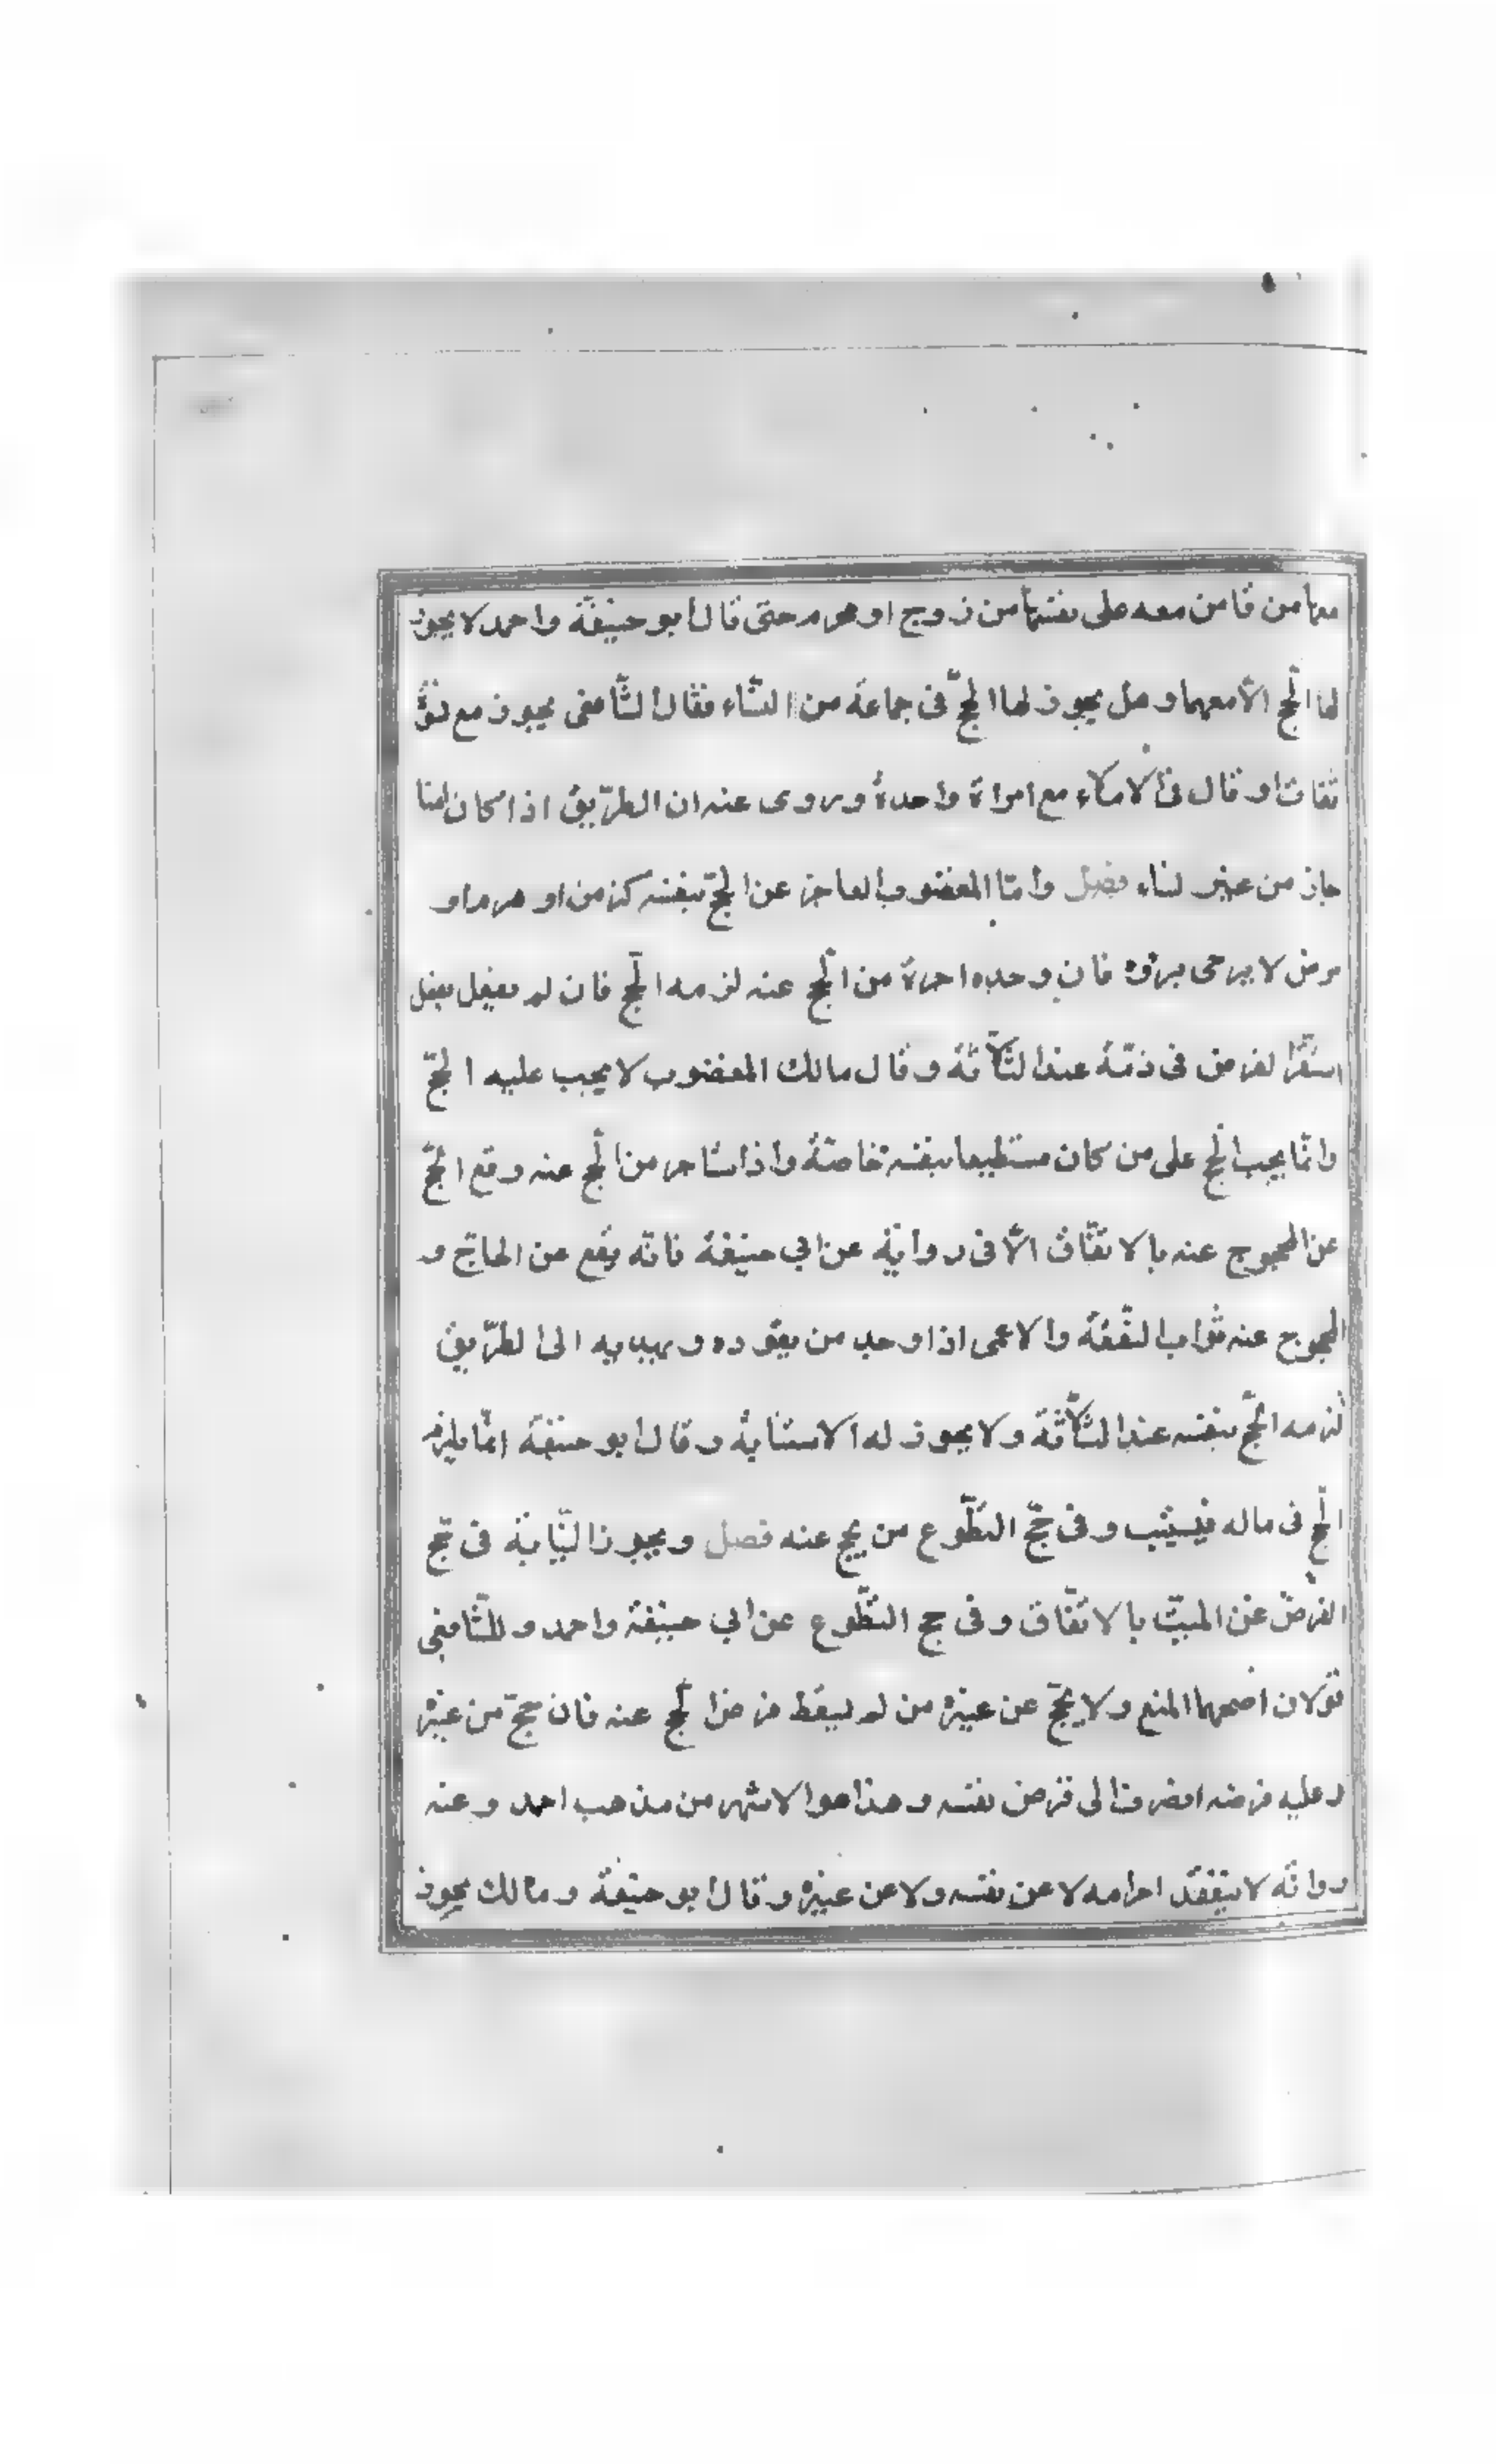 معها من تامن معه على نفسها من زوج او محرم حتى قال ابو حنيفة واحمد لا يجوز
لها الحج الا معهما وهل يجوز لها الحج فى جماعة من النساء فقال الشافعى يجوز مع نسوة
ثقات او قال فى الاملاء مع امراة واحدة وروى عنه ان الطريق اذا كان امنا
جاز من غير نساء فصل واما المعضوب العاجز عن الحج بنفسه كزمن او هرم او
مرض لا يرجى برؤه فان وجد اجرة من الحج عنه لزمه الحج فان لم يفعل
استقر الفرض فى ذمته عند الثلاثة وقال مالك المعضوب لا يجب عليه الحج
وانما يجب الحج على من كان مستطيعا بنفسه خاصة واذا استاجر من الحج عنه وقع الحج
عن المحجوج عنه بالاتفاق الا فى رواية عن ابى حنيفة فانه يقع عن الحاج و
المحجوج عنه ثواب النفقة والاعمى اذا وجد من يقوده ويهديه الى الطريق
لزمه الحج بنفسه عند الثلاثة ولا يجوز له الاستنابة وقال ابو حنيفة انما يلزمه
الحج فى ماله فيستنيب وفى حج التطوع من يحج عنه فصل ويجوز النيابة فى حج
الفرض عن الميت بالاتفاق وفى حج التطوع عن ابى حنيفة واحمد وللشافعى
قولان اصحهما المنع ولا يحج عن غيره من لم يسقط فرض الحج عنه فان حج من غيره
وعليه فرضه انصرف الى فرض نفسه وهذا هو الاشهر من مذهب احمد وعنه
رواية لا ينعقد احرامه لا عن نفسه ولا عن غيره وقال ابو حنيفة ومالك يجوز